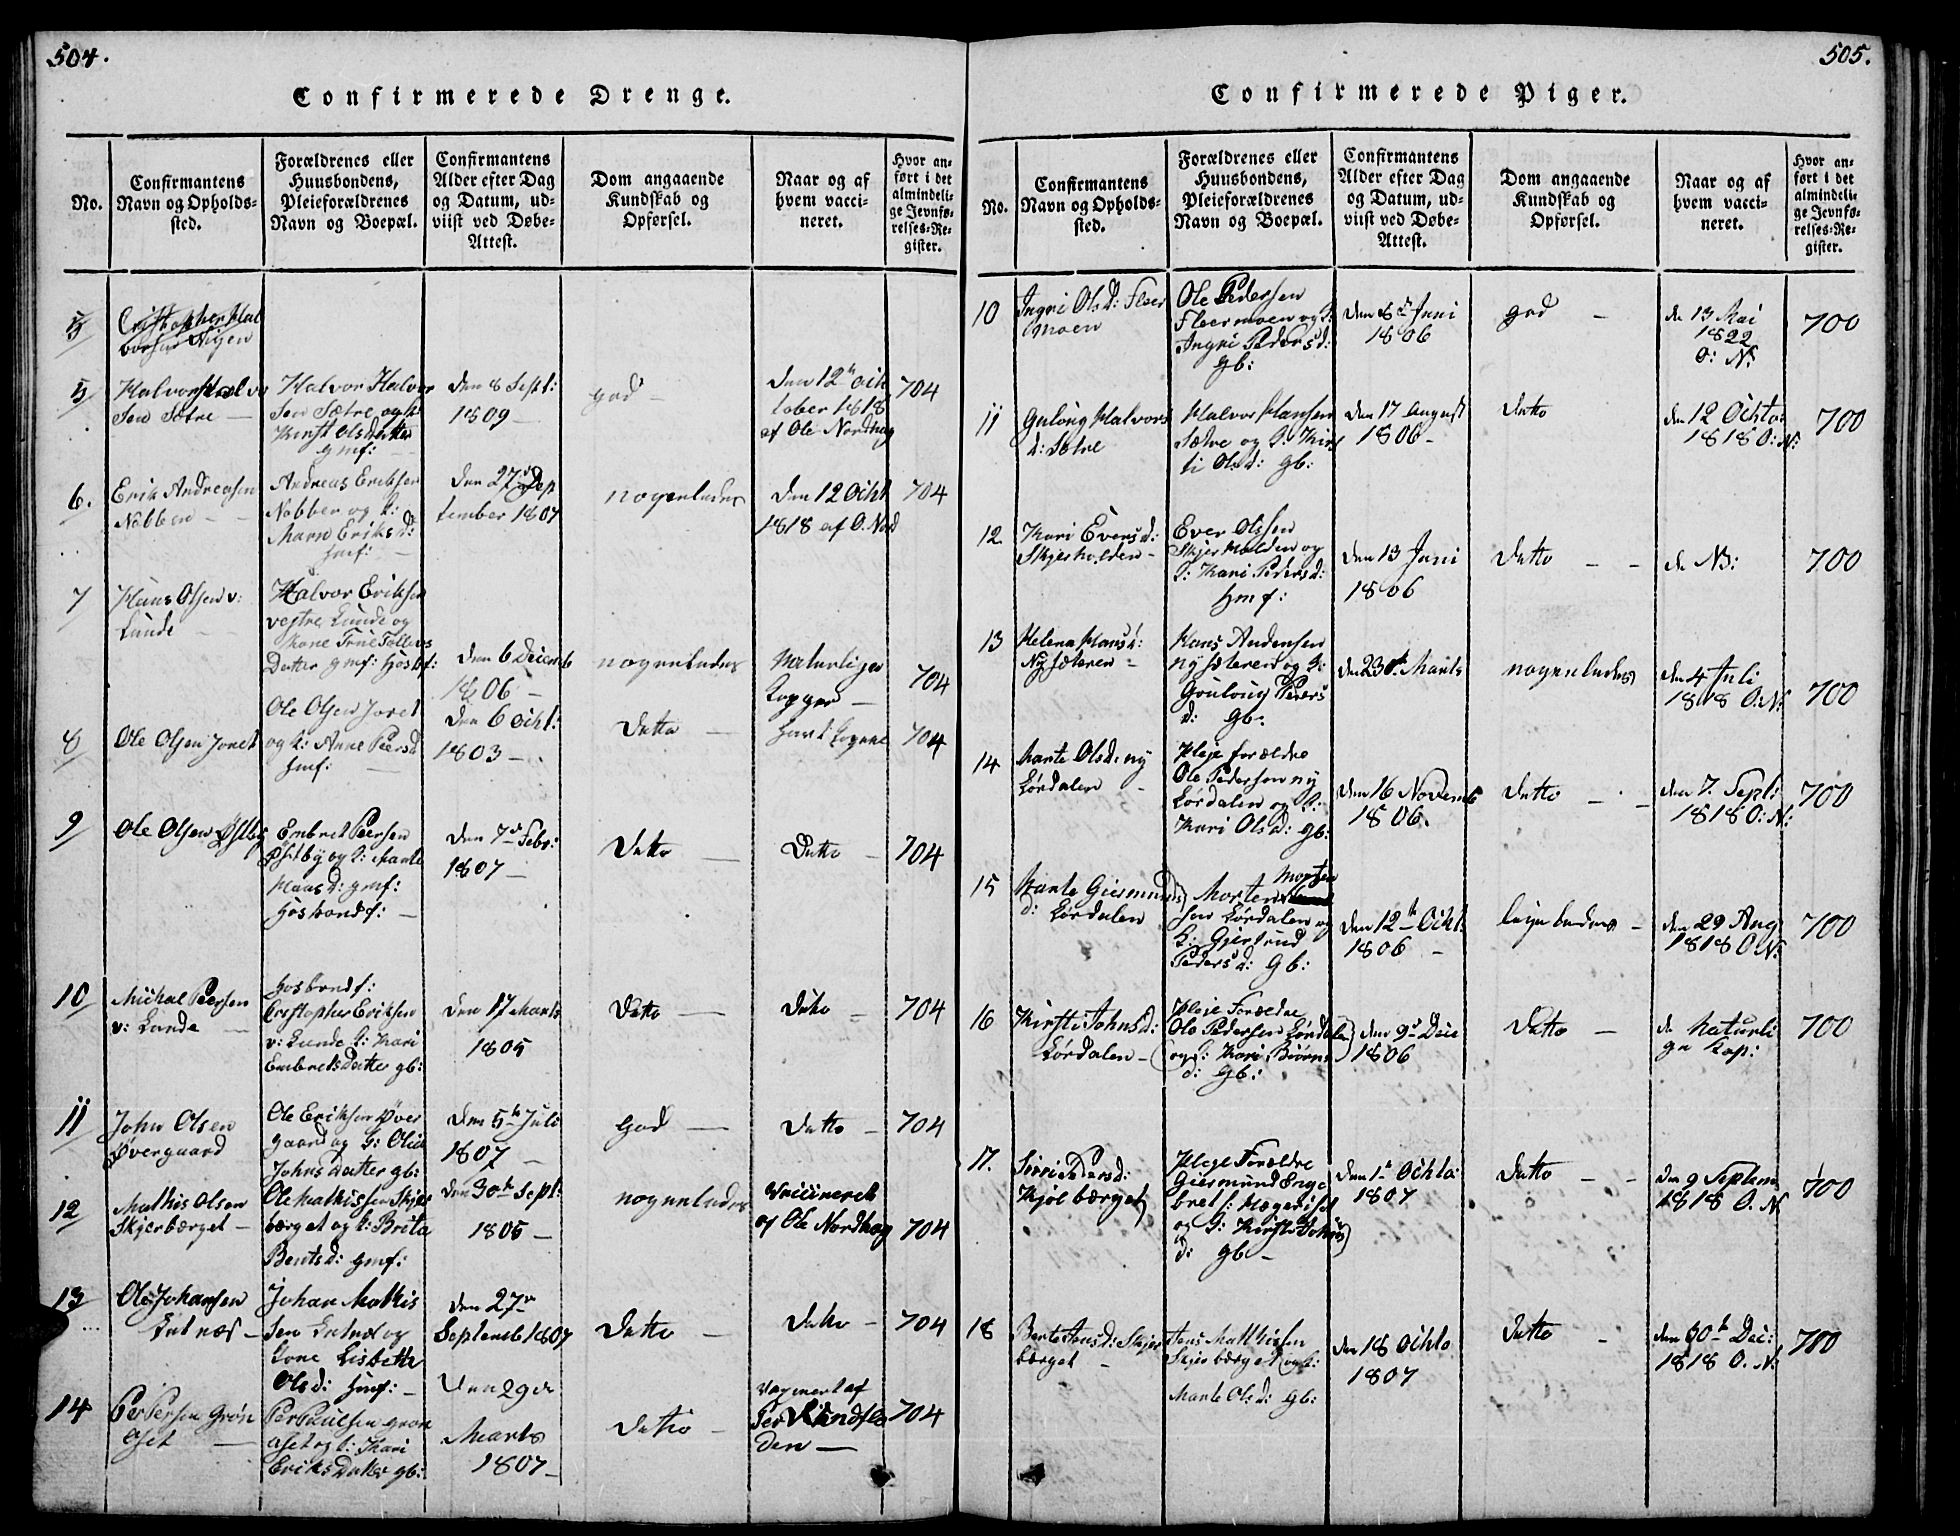 504.
Confirmerede Drenge.
No.
Confirmantens
Navn og Opholds-
sted.
Forældrenes eller
Huusbondens,
Pleieforældrenes
Navn og Boepæl.
Confirmantens
Alder efter Dag
og Datum, ud-
viist ved Døbe-
Attest.
Dom angaaende
Kundskab og
Opførsel.
Naar og af
hvem vacci-
neret.
Hvor an-
ført i det
almindeli-
ge Jevnfø-
relses-Re-
gister.
5
Cristopher Hal
vorsen Nijen
5
Halvor Halvor
sen Sætre —
Halvor Halvor
sen Sætre og k:
Kirst Olsdatter
gmf:
den 8 Sept:
1809 —
god —
den 12th Och
tober 1818
af Ole Nordhag
704
6.
Erik Andreasen
Nabben — —
Andreas Eriksen
Nabben og k:
Marn Eriks d:
hmf: —
den 27d Sep
tember 1807
nogenledes
den 12 Ocht
1818 af O. Nord
704
7
Hans Olsen v:
Lunde —
Halvor Eriksen
vestre Lunde og
Kone True Tollevs
Datter gmf: Hosbf:
den 6 Decemb
1806 —
nogenledes
Naturlige
Kopper —
704
8
Ole Olsen Joret
Ole Olsen Joret
og k: Anne Peersd
hmf: —
den 6 Ocht:
1803 —
Datto —
704
9
Ole Olsen Østby
Enbret Peersen
Østby og k: Marte
Hans d: gmf:
Hosbondf: —
den 7d Febr:
1807 —
Datto —
Datto —
704
10
Michal Peersen
v: Lunde —
Hosbondf:
Cristopher Eriksen
v: Lunde k: Kari
Embretsdatter gb:
den 17 Marts
1805
Datto —
Datto —
704
11
John Olsen
Øvergaard
Ole Eriksen Øver
gaard og k: Olia
Johnsdatter gb:
den 5th Juli
1807 —
god —
Datto —
704
12
Mathis Olsen
Skjerbærget —
Ole Mathissen Skjer
bærget og k: Brita
Bentsd: gmf:
den 30th Sept:
1805 —
nogenledes
Vaccineret
af Ole Nordhag
704
13
Ole Johansen
Entnæs —
Johan Mathis
sen Entnæs og
kone Lisbette
Olsd: hmf: —
den 27de
Septemb 1807
Datto —
Datto —
704
14
Per Persen Grøn
oset —
Per Paulsen grøn
oset og k: Kari
Eriksdatter gb:
den 2den
Marts
1807 —
Datto —
Vaxineret af
Per Sundflæ
den —
704
505.
Confirmerede Piger.
No.
Confirmantens
Navn og Opholds-
sted.
Forældrenes eller
Huusbondens,
Pleieforældrenes
Navn og Boepæl.
Confirmantens
Alder efter Dag
og Datum, ud-
viist ved Døbe-
Attest.
Dom angaaende
Kundskab og
Opførsel.
Naar og af
hvem vacci-
neret.
Hvor an-
ført i det
almindeli-
ge Jevnfø-
relses-Re-
gister.
10
Ingri Olsd: Fleer
moen
Ole Pedersen
Fleermoen og k:
Ingri Pedersd:
gb:
den 8de Juni
1806
god —
de 13 Mai
1822
O: N:
700
11
Gulong Halvors
d: Sætre
Halvor Hansen
Sætre og k: Kirs
ti Olsd: gb:
den 17 August
1806 —
Datto
den 12 Ochto:
1818 O: N:
700
12.
Kari Evers d:
Skjerholden —
Ever Olssen
Skjerholden og
k: Kari Peders d:
hmf:
den 13 Juni
1806
Datto — —
de N:
700
13
Helena Hans d:
Nysæteren —
Hans Andersen
nysæteren og k:
Gouloug Peders
d: gb.
den 23de Marts
nogenledes
den 4 Juli
1818 O: N:
700
14
Marte Olsd: ny
Lørdalen —
Pleje forældre
Ole Pedersen ny
Lørdalen og k:
Kari Olsd: gb:
den 16 Novemb
1806.
Datto — —
den 7. Sept:
1818 O: N:
700
15
Marte Giermunds
d: Lørdalen
Morten Morten
sen Lørdalen og
k: Gjertrud
Peders d: gb:
den 12th Ocht:
1806 —
den 29 Aug
1818 O. N:
700
16
Kirsti Johns d:
Lørdalen —
Pleje Forædre
Ole Pedersen Lørdale
og k: Kari Biørns
d: gb:
den 9d Dec
1806
Datto —
de Naturli
ge Kop:
700
17.
Siri Peders d:
Kjølbærget
Pleje Forældre
Giermund Enge
bret s: Hægerist
og k: Kirsti Johns
d: gb —
den 1te Ochto:
1807
Datto — —
den 9 Septem
1818 O. N
700
18
Berte Jensd: Skjer
bærget —
Jens Matthisen
Skjerbærget og k:
Marte Olsd: gb:
den 18 Ochto
1807
Datto —
den 30th Dec:
1818 O. N:
700